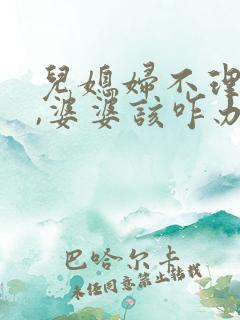 兒媳婦不理
,婆婆該咋办
巴哈尔卡
未经同意禁止转载